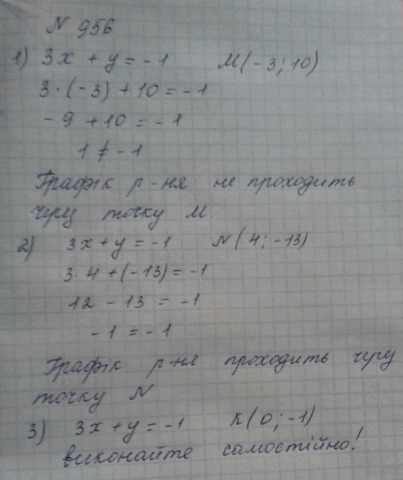 N 956
1) 3x + y = -1 M(-3; 10)
3·(-3) + 10 = -1
-9 + 10 = -1
1 ≠ -1
Графік р-ня не проходить
через точку M.
2) 3x + y = -1 N(4; -13)
3·4 + (-13) = -1
12 - 13 = -1
-1 = -1
Графік р-ня проходить через
точку N
3) 3x + y = -1 K(0; -1)
виконайте самостійно!